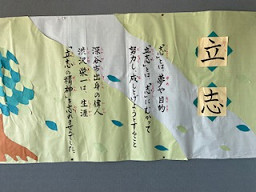 立志
「志」とは、夢や目的
「立志」とは、「志」にむかって
努力し、成しとげようとすること
深谷市出身の偉人
渋沢栄一は、生涯
「立志の精神」を忘れませんでした。